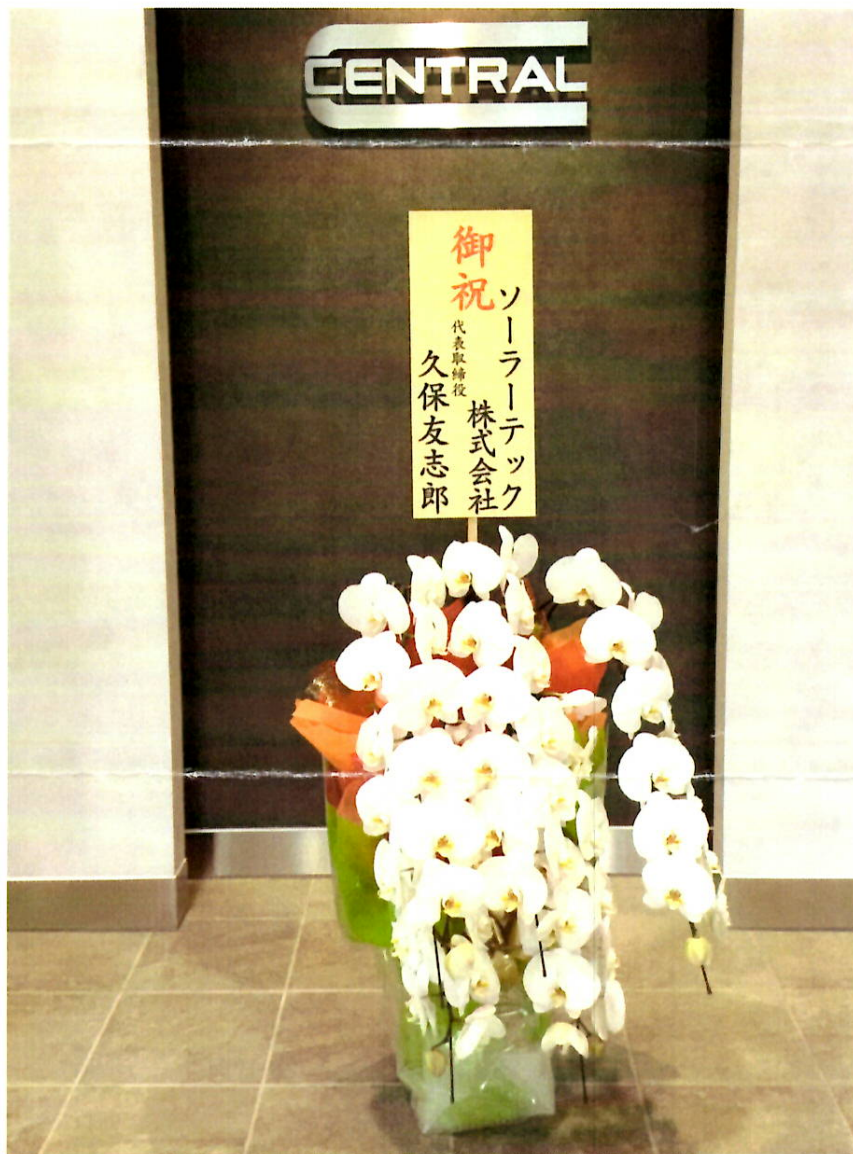 CENTRAL
御祝
ソーラーテック
株式会社
代表取締役
久保友志郎